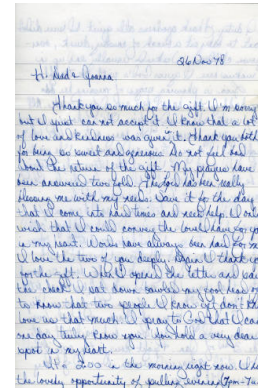 26 Nov 78
Hi Dad & Joanna,
Thank you so much for the gift. I'm sorry
but I just can not accept it. I know that a lot
of love and kindness was given it. Thank you both
for being so sweet and generous. Do not feel bad
about the return of the gift. My prayers have
been answered two fold. The Lord has been really
blessing me with my needs. Save it for the day
that I come into hard times and need help. I only
wish that I could convey the love I have for you
in my heart. Words have always been hard for me.
I love the two of you deeply. Again I thank you
for the gift. When I opened the letter and saw
the check I sat down bawled my
to know that two people I know yet don't
love us that much. I pray to God that I can
one day truly know you. You hold a very dear
spot in my heart.
It's 200 in the morning right now. I have
the lovely opportunity of pulling